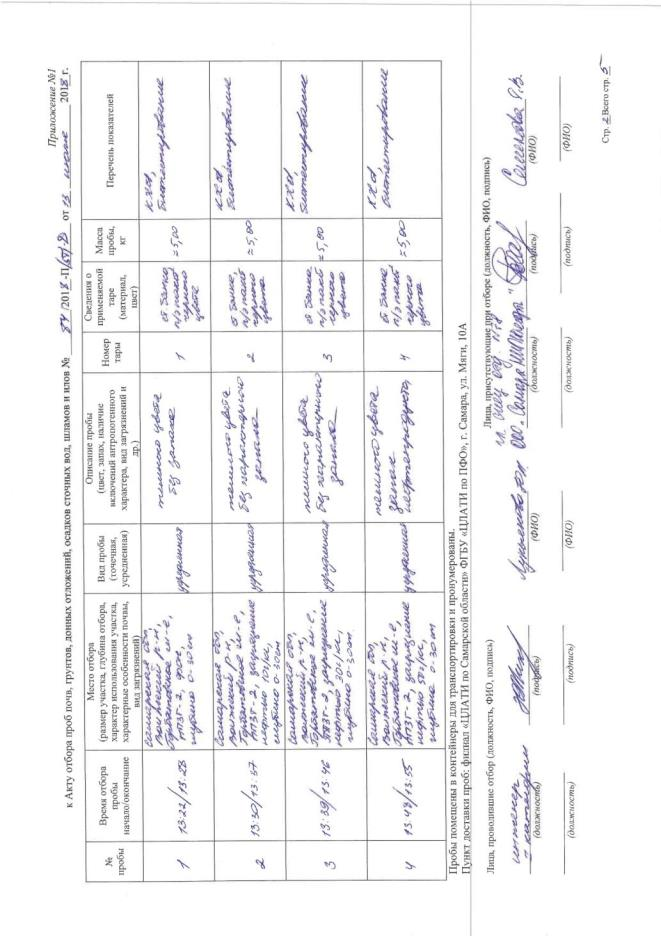 Приложение №1
к Акту отбора проб почв, грунтов, донных отложений, осадков сточных вод, шламов и илов № 84 /2018 -П от 13 2018 г.
№ пробы
Время отбора пробы начало/окончание
Место отбора (размер участка, глубина отбора, характер использования участка, характерные особенности почвы, вид загрязнений)
Вид пробы (точечная, усредненная)
Описание пробы (цвет, запах, наличие включений антропогенного характера, вид загрязнений и др.)
Номер тары
Сведения о применяемой таре (материал, цвет)
Масса пробы, кг
Перечень показателей
1
13:22/13:28
Самарская обл,
Волжский р-н,
АПЗГ-2, фон,
глубина 0-30 см
усредненная
темного цвета
без запаха
1
п/э пакет
черного
цвета
≈5,00
КХА,
биотестирование
2
13:30/13:37
Самарская обл,
Волжский р-н,
АПЗГ-2, загрязнение
нефтью 10 г/кг,
глубина 0-30 см
усредненная
темного цвета
без характерного
запаха
2
п/э пакет
черного
цвета
≈5,00
КХА,
биотестирование
3
13:39/13:46
Самарская обл,
Волжский р-н,
загрязнение
нефтью 30 г/кг,
глубина 0-30 см
усредненная
темного цвета
без характерного
запаха
3
п/э пакет
черного
цвета
≈5,00
КХА,
биотестирование
4
13:48/13:55
Самарская обл,
Волжский р-н,
АПЗГ-2, загрязнение
нефтью 50 г/кг,
глубина 0-30 см
усредненная
темного цвета
запах
нефтепродуктов
4
п/э пакет
черного
цвета
≈5,00
КХА,
биотестирование
Пробы помещены в контейнеры для транспортировки и пронумерованы.
Пункт доставки проб: филиал «ЦЛАТИ по Самарской области» ФГБУ «ЦЛАТИ по ПФО», г. Самара, ул. Мяги, 10А
Лица, проводившие отбор (должность, ФИО, подпись)
Лица, присутствующие при отборе (должность, ФИО, подпись)
инженер
категории
(должность) (подпись) (ФИО) (должность) (подпись) (ФИО)
(должность) (подпись) (ФИО) (должность) (подпись) (ФИО)
Стр. 2 Всего стр. 5